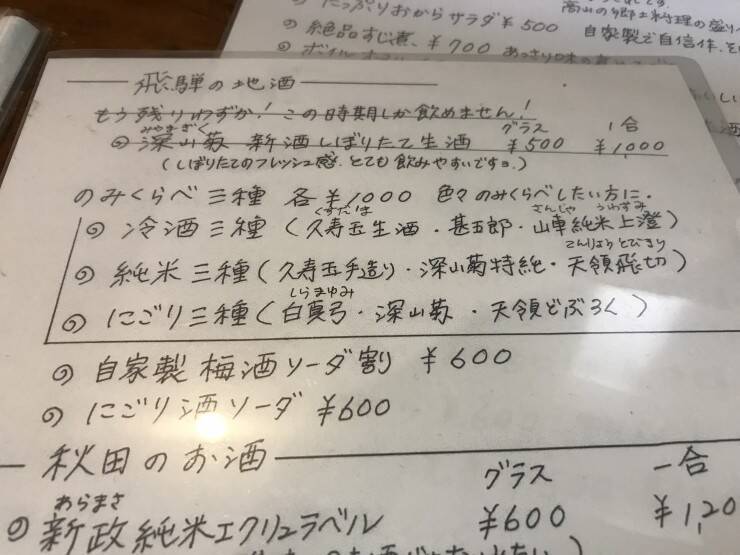 たっぷりおからサラダ ¥500
絶品すじ煮、¥700 あっさり味の
自家製で自信作、
飛騨の地酒
もう残りわずか! この時期しか飲めません!
みやまぎく グラス 一合
深山菊 新酒しぼりたて生酒 ¥500 ¥1,000
(しぼりたてのフレッシュ感、とても飲みやすいですョ。)
のみくらべ三種 各¥1000 色々のみくらべしたい方に。
くすだま さんしゃ うわずみ
冷酒三種(久寿玉生酒・甚五郎・山車純米上澄)
てんりょうとびきり
純米三種(久寿玉手造り・深山菊特純・天領飛切)
しらまゆみ
にごり三種(白真弓・深山菊・天領どぶろく)
自家製梅酒ソーダ割 ¥600
にごり酒ソーダ ¥600
秋田のお酒
グラス 一合
あらまさ
新政純米エクリュラベル ¥600 ¥1,20